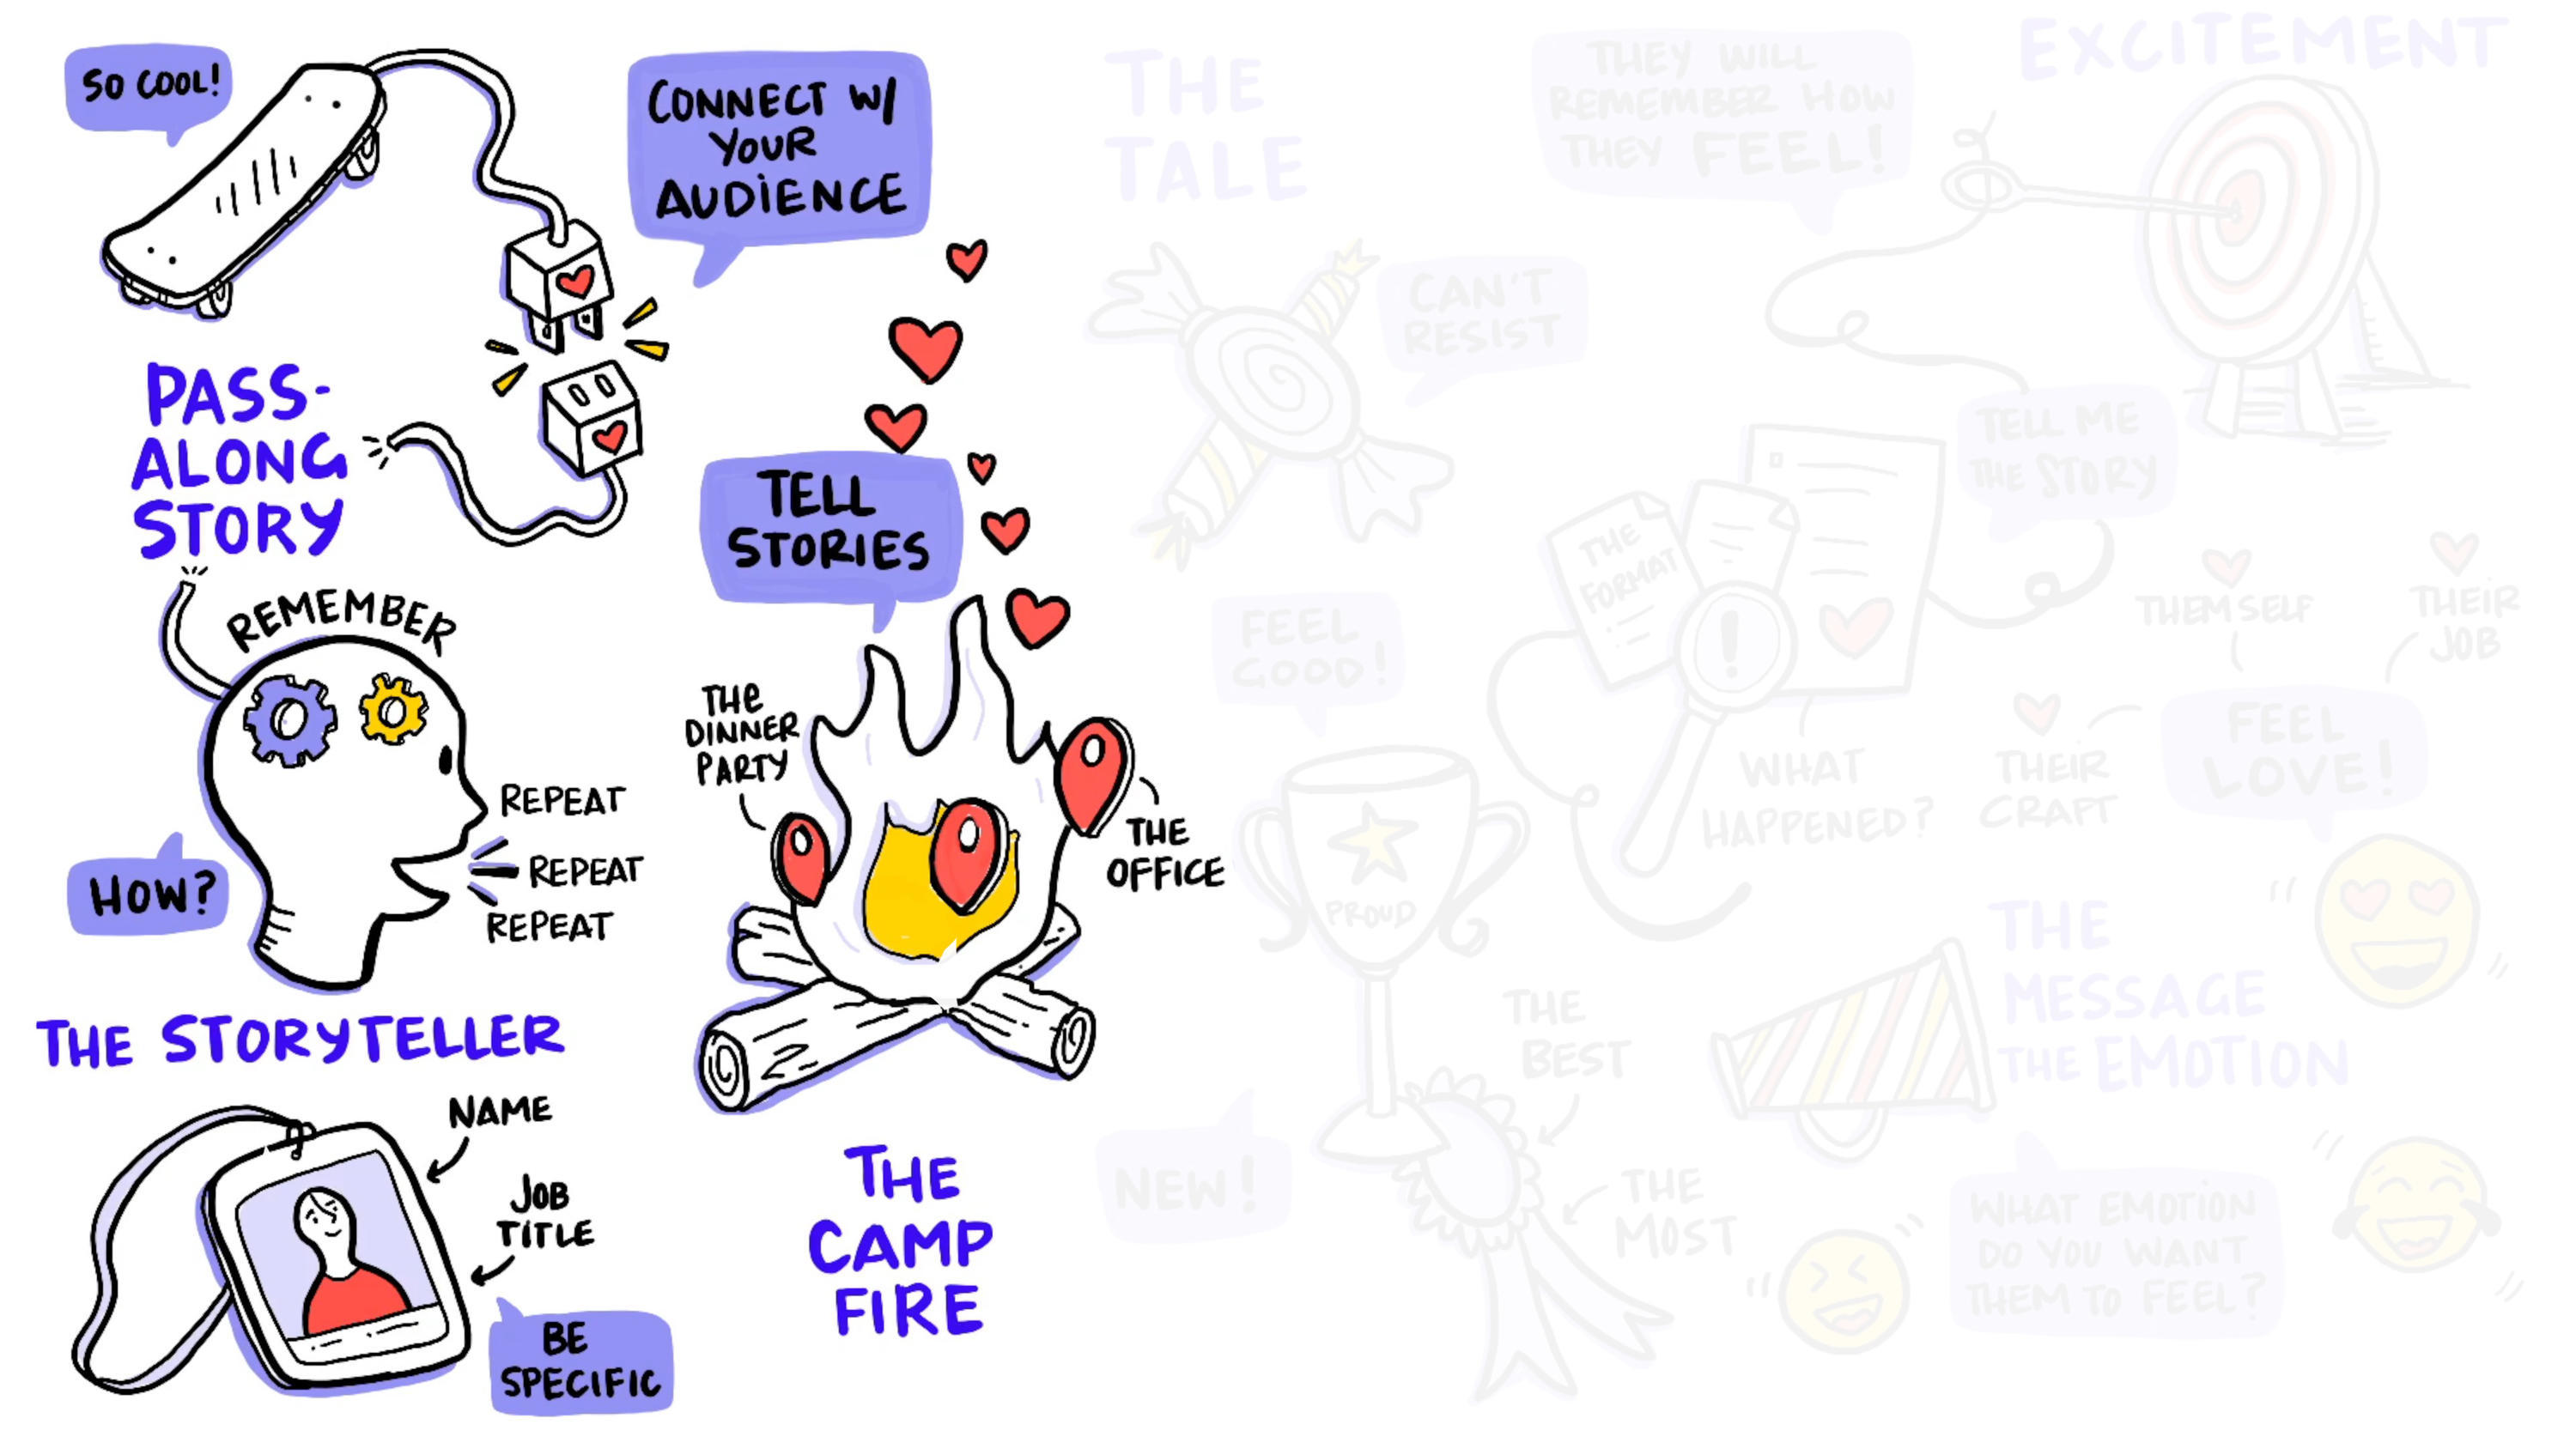 SO COOL!
CONNECT W/
YOUR
AUDIENCE
PASS-
ALONG
STORY
REMEMBER
HOW?
REPEAT
REPEAT
REPEAT
THE STORYTELLER
NAME
JOB
TITLE
BE
SPECIFIC
TELL
STORIES
THE
DINNER
PARTY
THE
OFFICE
THE
CAMP
FIRE
THE
TALE
CAN'T
RESIST
THEY WILL
REMEMBER HOW
THEY FEEL!
EXCITEMENT
TELL ME
THE STORY
THE
FORMAT
!
WHAT
HAPPENED?
FEEL
GOOD!
PROUD
NEW!
THE
BEST
THE
MOST
THEMSELF
THEIR
JOB
THEIR
CRAFT
FEEL
LOVE!
THE
MESSAGE
THE EMOTION
WHAT EMOTION
DO YOU WANT
THEM TO FEEL?